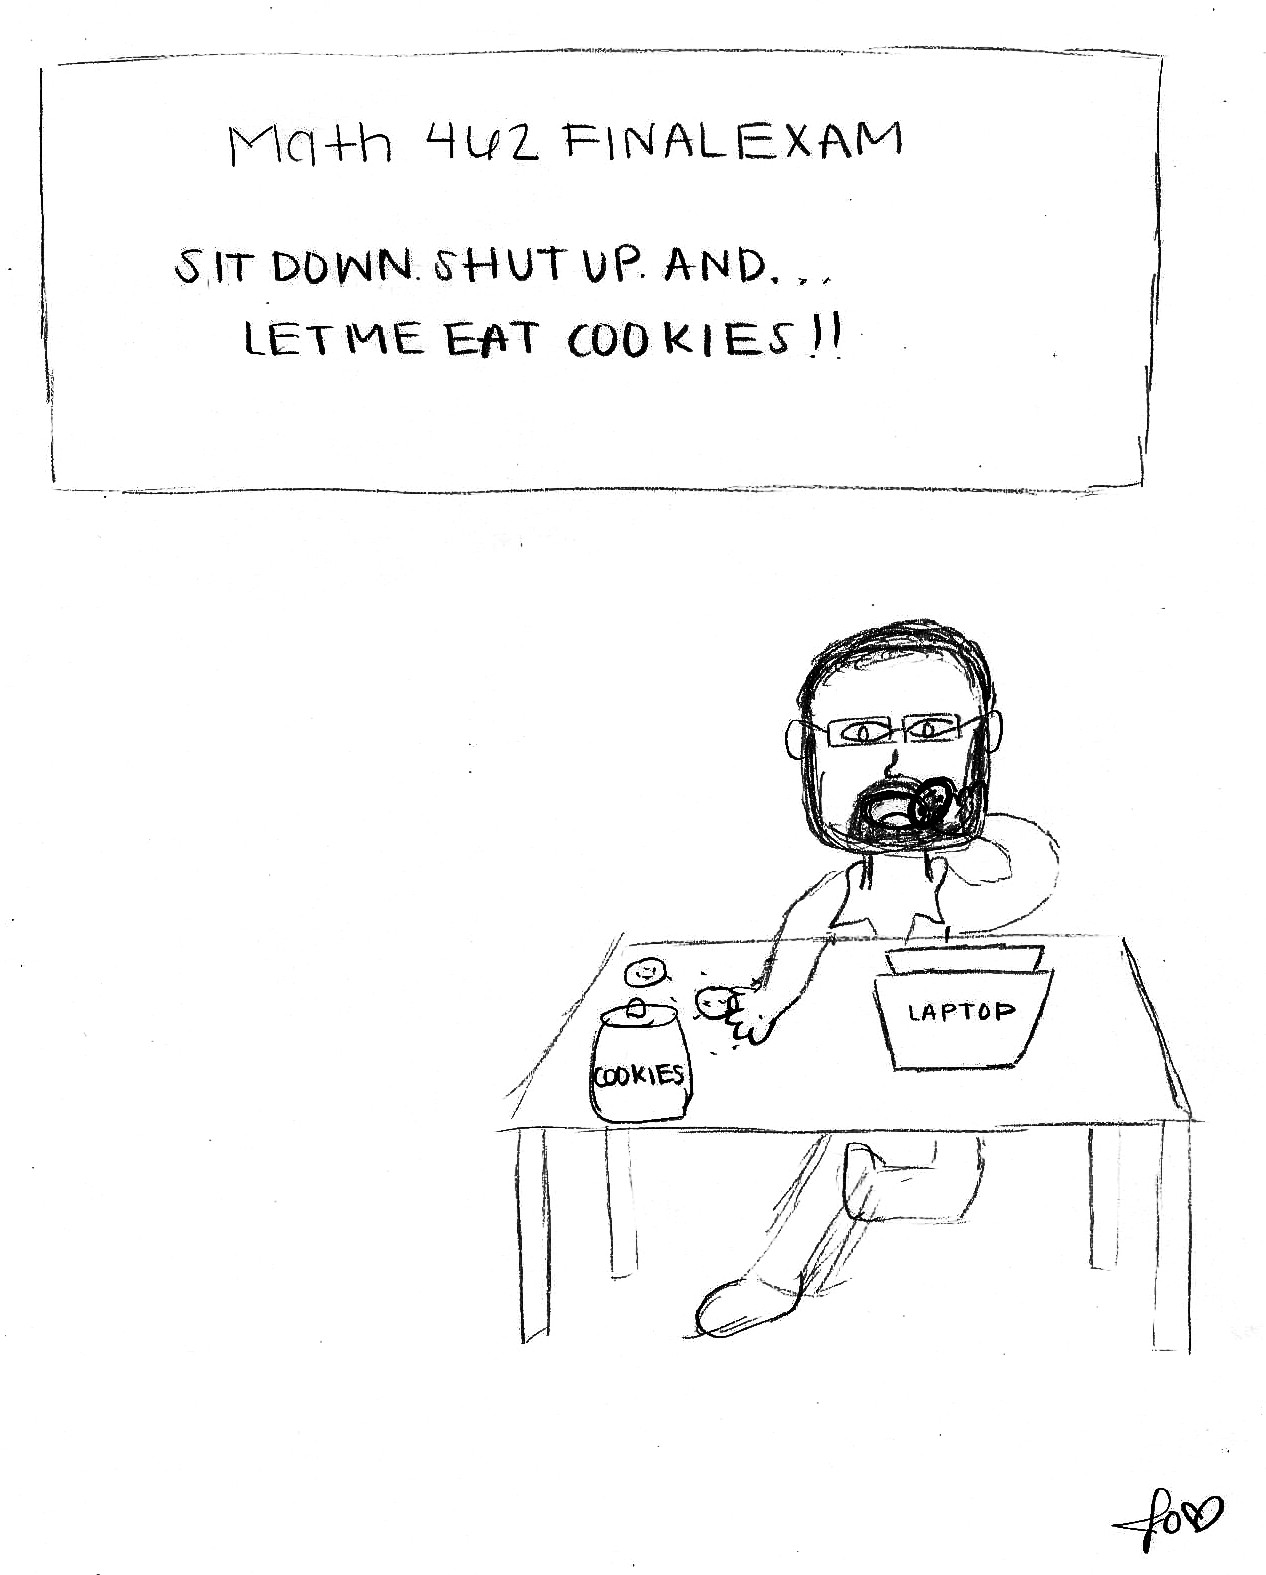 Math 462 FINAL EXAM
SIT DOWN. SHUT UP. AND...
LET ME EAT COOKIES!!
LAPTOP
COOKIES